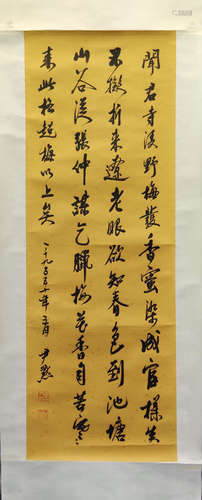 聞君寺後野梅發香蜜染成宮樣黃
不擬折來遮老眼欲知春色到池塘
山谷從張仲謀乞臘梅花香自苦寒
來此超梅以上矣 一千九五十年 尹默